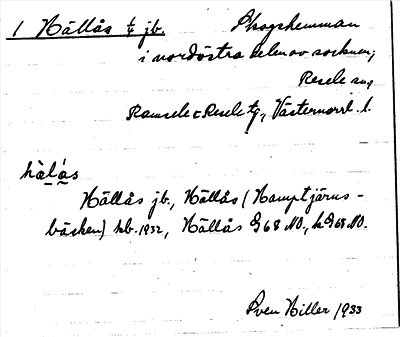 1 Hällås ¼ jb. Skogshemman
i nordöstra delen av socknen,
Resele sn,
Ramsele o Resele tg, Västernorrl. l.
hä̀lǻs
Hällås jb., Hällås (Kamptjärns-
bäcken) kb. 1932, Hällås G 68 NO., k G 68 NO.
Sven Hiller 1933